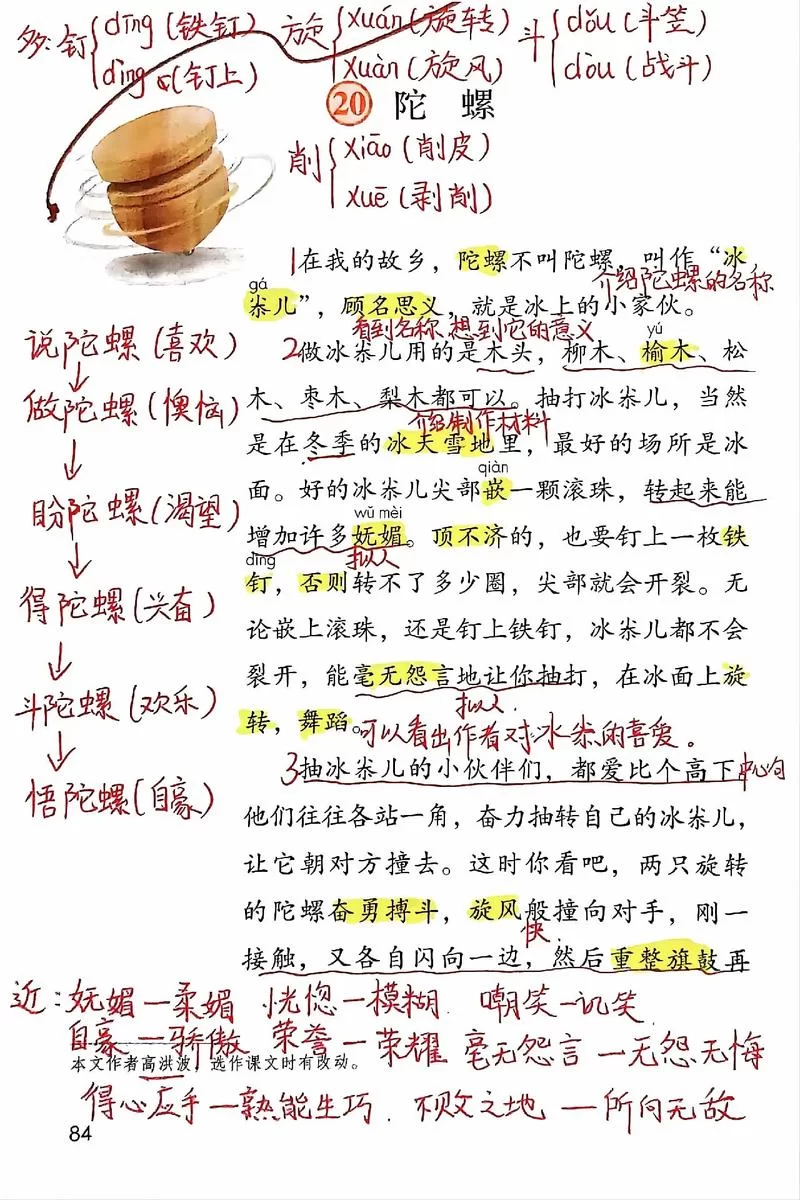 多:钉{dīng(铁钉) 旋{xuán(旋转) 斗{dǒu(斗笠)
dìng(钉上) xuàn(旋风) dòu(战斗)
20 陀 螺
削{xiāo(削皮)
xuē(剥削)
1在我的故乡，陀螺不叫陀螺，叫作“冰
介绍陀螺的名称
gá
尜儿”，顾名思义，就是冰上的小家伙。
看到名称想到它的意义
yú
2做冰尜儿用的是木头，柳木、榆木、松
木、枣木、梨木都可以。抽打冰尜儿，当然
介绍制作材料
是在冬季的冰天雪地里，最好的场所是冰
qiàn
面。好的冰尜儿尖部嵌一颗滚珠，转起来能
wǔ mèi
增加许多妩媚。顶不济的，也要钉上一枚铁
dīng 拟人
钉，否则转不了多少圈，尖部就会开裂。无
论嵌上滚珠，还是钉上铁钉，冰尜儿都不会
裂开，能毫无怨言地让你抽打，在冰面上旋
拟人
转，舞蹈。
可以看出作者对冰尜的喜爱。
3抽冰尜儿的小伙伴们，都爱比个高下
中心句
他们往往各站一角，奋力抽转自己的冰尜儿，
让它朝对方撞去。这时你看吧，两只旋转
的陀螺奋勇搏斗，旋风般撞向对手，刚一
快
接触，又各自闪向一边，然后重整旗鼓再
说陀螺(喜欢)
↓
做陀螺(懊恼)
↓
盼陀螺(渴望)
↓
得陀螺(兴奋)
↓
斗陀螺(欢乐)
↓
悟陀螺(自豪)
近:妩媚—柔媚 恍惚—模糊 嘲笑—讥笑
自豪—骄傲 荣誉—荣耀 毫无怨言—无怨无悔
本文作者高洪波，选作课文时有改动。
得心应手—熟能生巧 不败之地—所向无敌
84